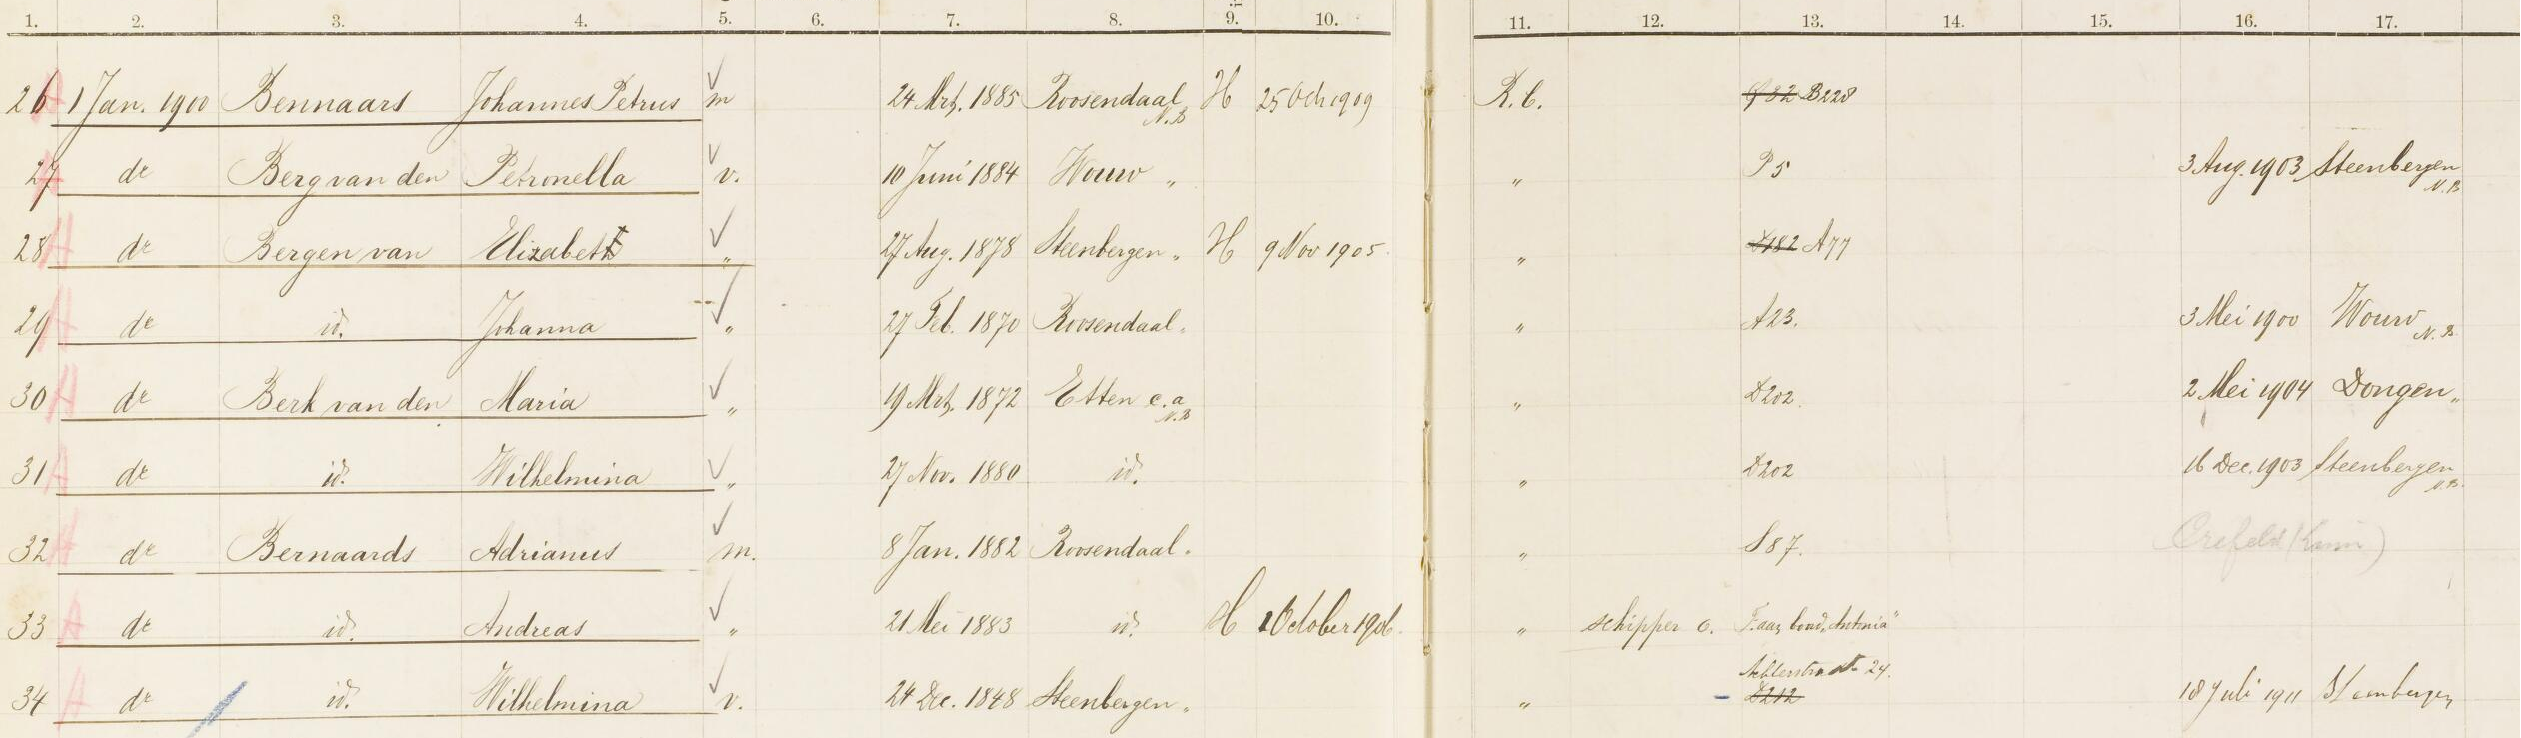 1. 2. 3. 4. 5. 6. 7. 8. 9. 10. 11. 12. 13. 14. 15. 16. 17.
26 1 Jan. 1900 Bennaars Johannes Petrus m 24 Mrt. 1885 Roosendaal N.B H 25 Oct 1909 R.C. B228
27 do Berg van den Petronella v. 10 Juni 1884 Wouw „ „ P5 3 Aug. 1903 Steenbergen N.B
28 do Bergen van Elizabeth „ 27 Aug. 1878 Steenbergen „ H 9 Nov 1905. „ D182 A77
29 do id. Johanna „ 27 Feb. 1870 Roosendaal „ „ A23. 3 Mei 1900 Wouw N.B.
30 do Berk van den Maria „ 19 Mrt. 1872 Etten c.a N.B „ D202. 2 Mei 1904 Dongen „
31 do id. Wilhelmina „ 27 Nov. 1880 id. „ D202 16 Dec. 1903 Steenbergen N.B.
32 do Bernaards Adrianus m. 8 Jan. 1882 Roosendaal „ „ S87. Crefeld
33 do id. Andreas „ 21 Mei 1883 id. H October 1906. „ schipper o. „Antonia"
34 do id. Wilhelmina v. 24 Dec. 1848 Steenbergen „ „ 24. D212 18 Juli 1911 Steenbergen